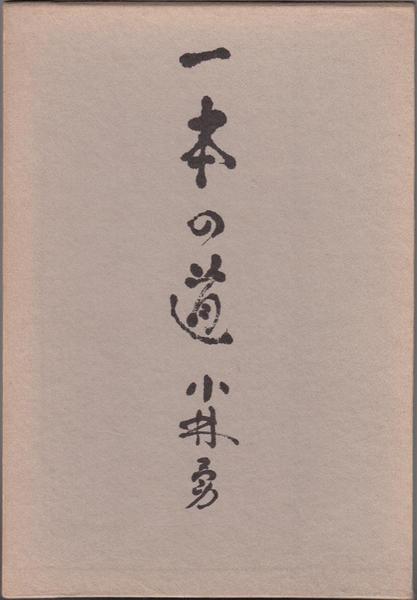 一本の道 小林勇